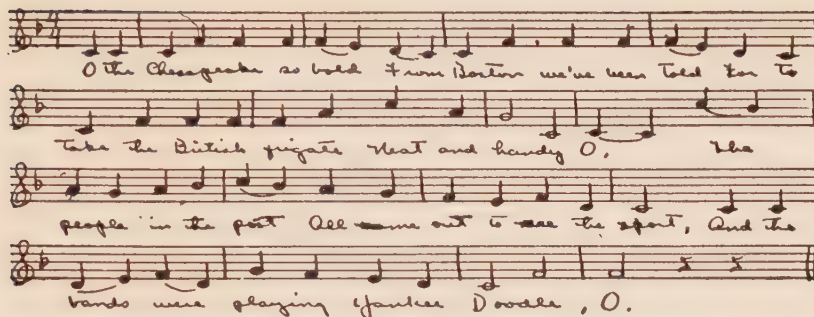 O the Chesapeake so bold From Boston we've been told For to
take the British frigate Neat and handy O. The
people in the port All came out to see the sport, And the
bands were playing Yankee Doodle, O.